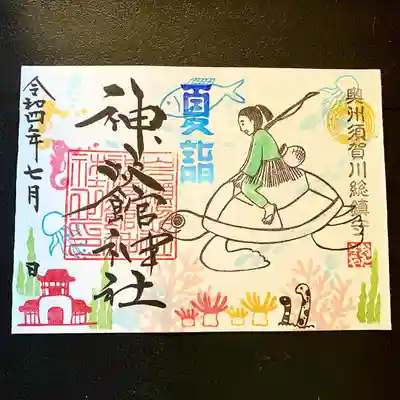 奥州須賀川総鎮守
夏詣
神炊館神社
令和四年七月 日